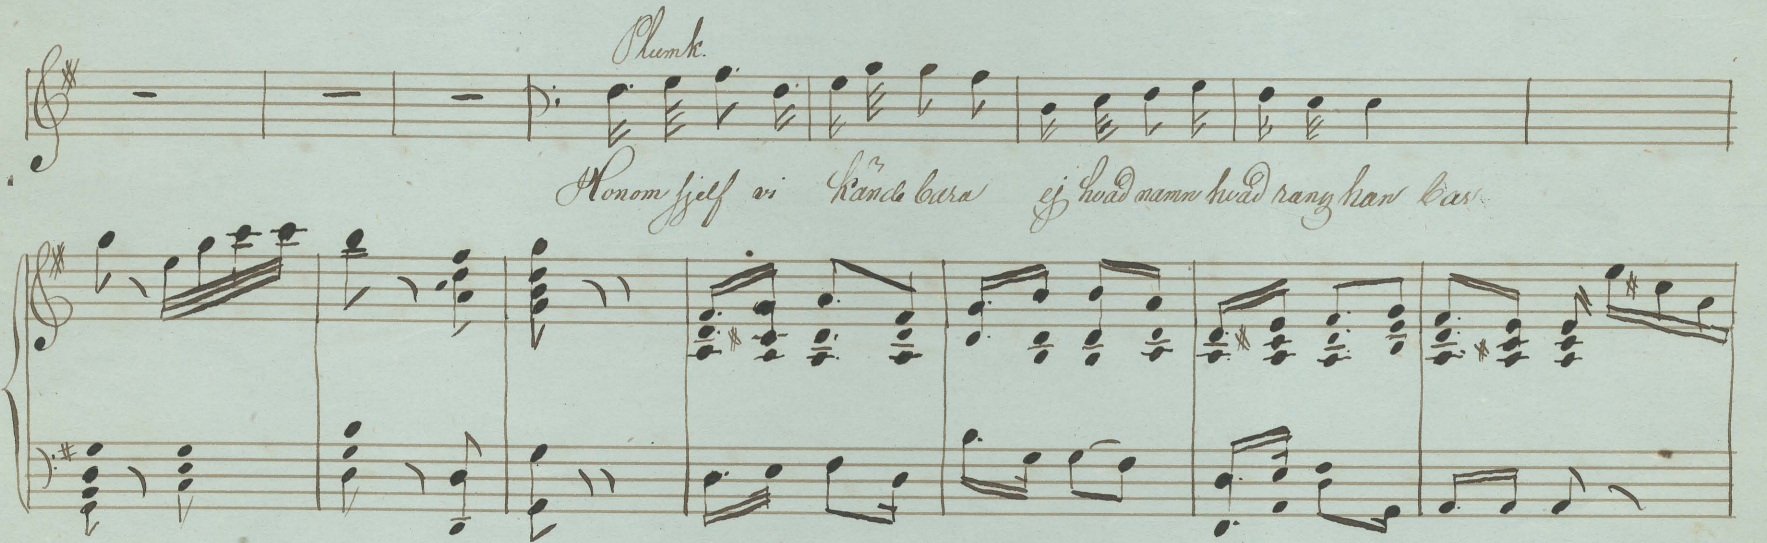 Plumk.
Honom sjelf vi kände bara ej hvad namn hvad rang han bar